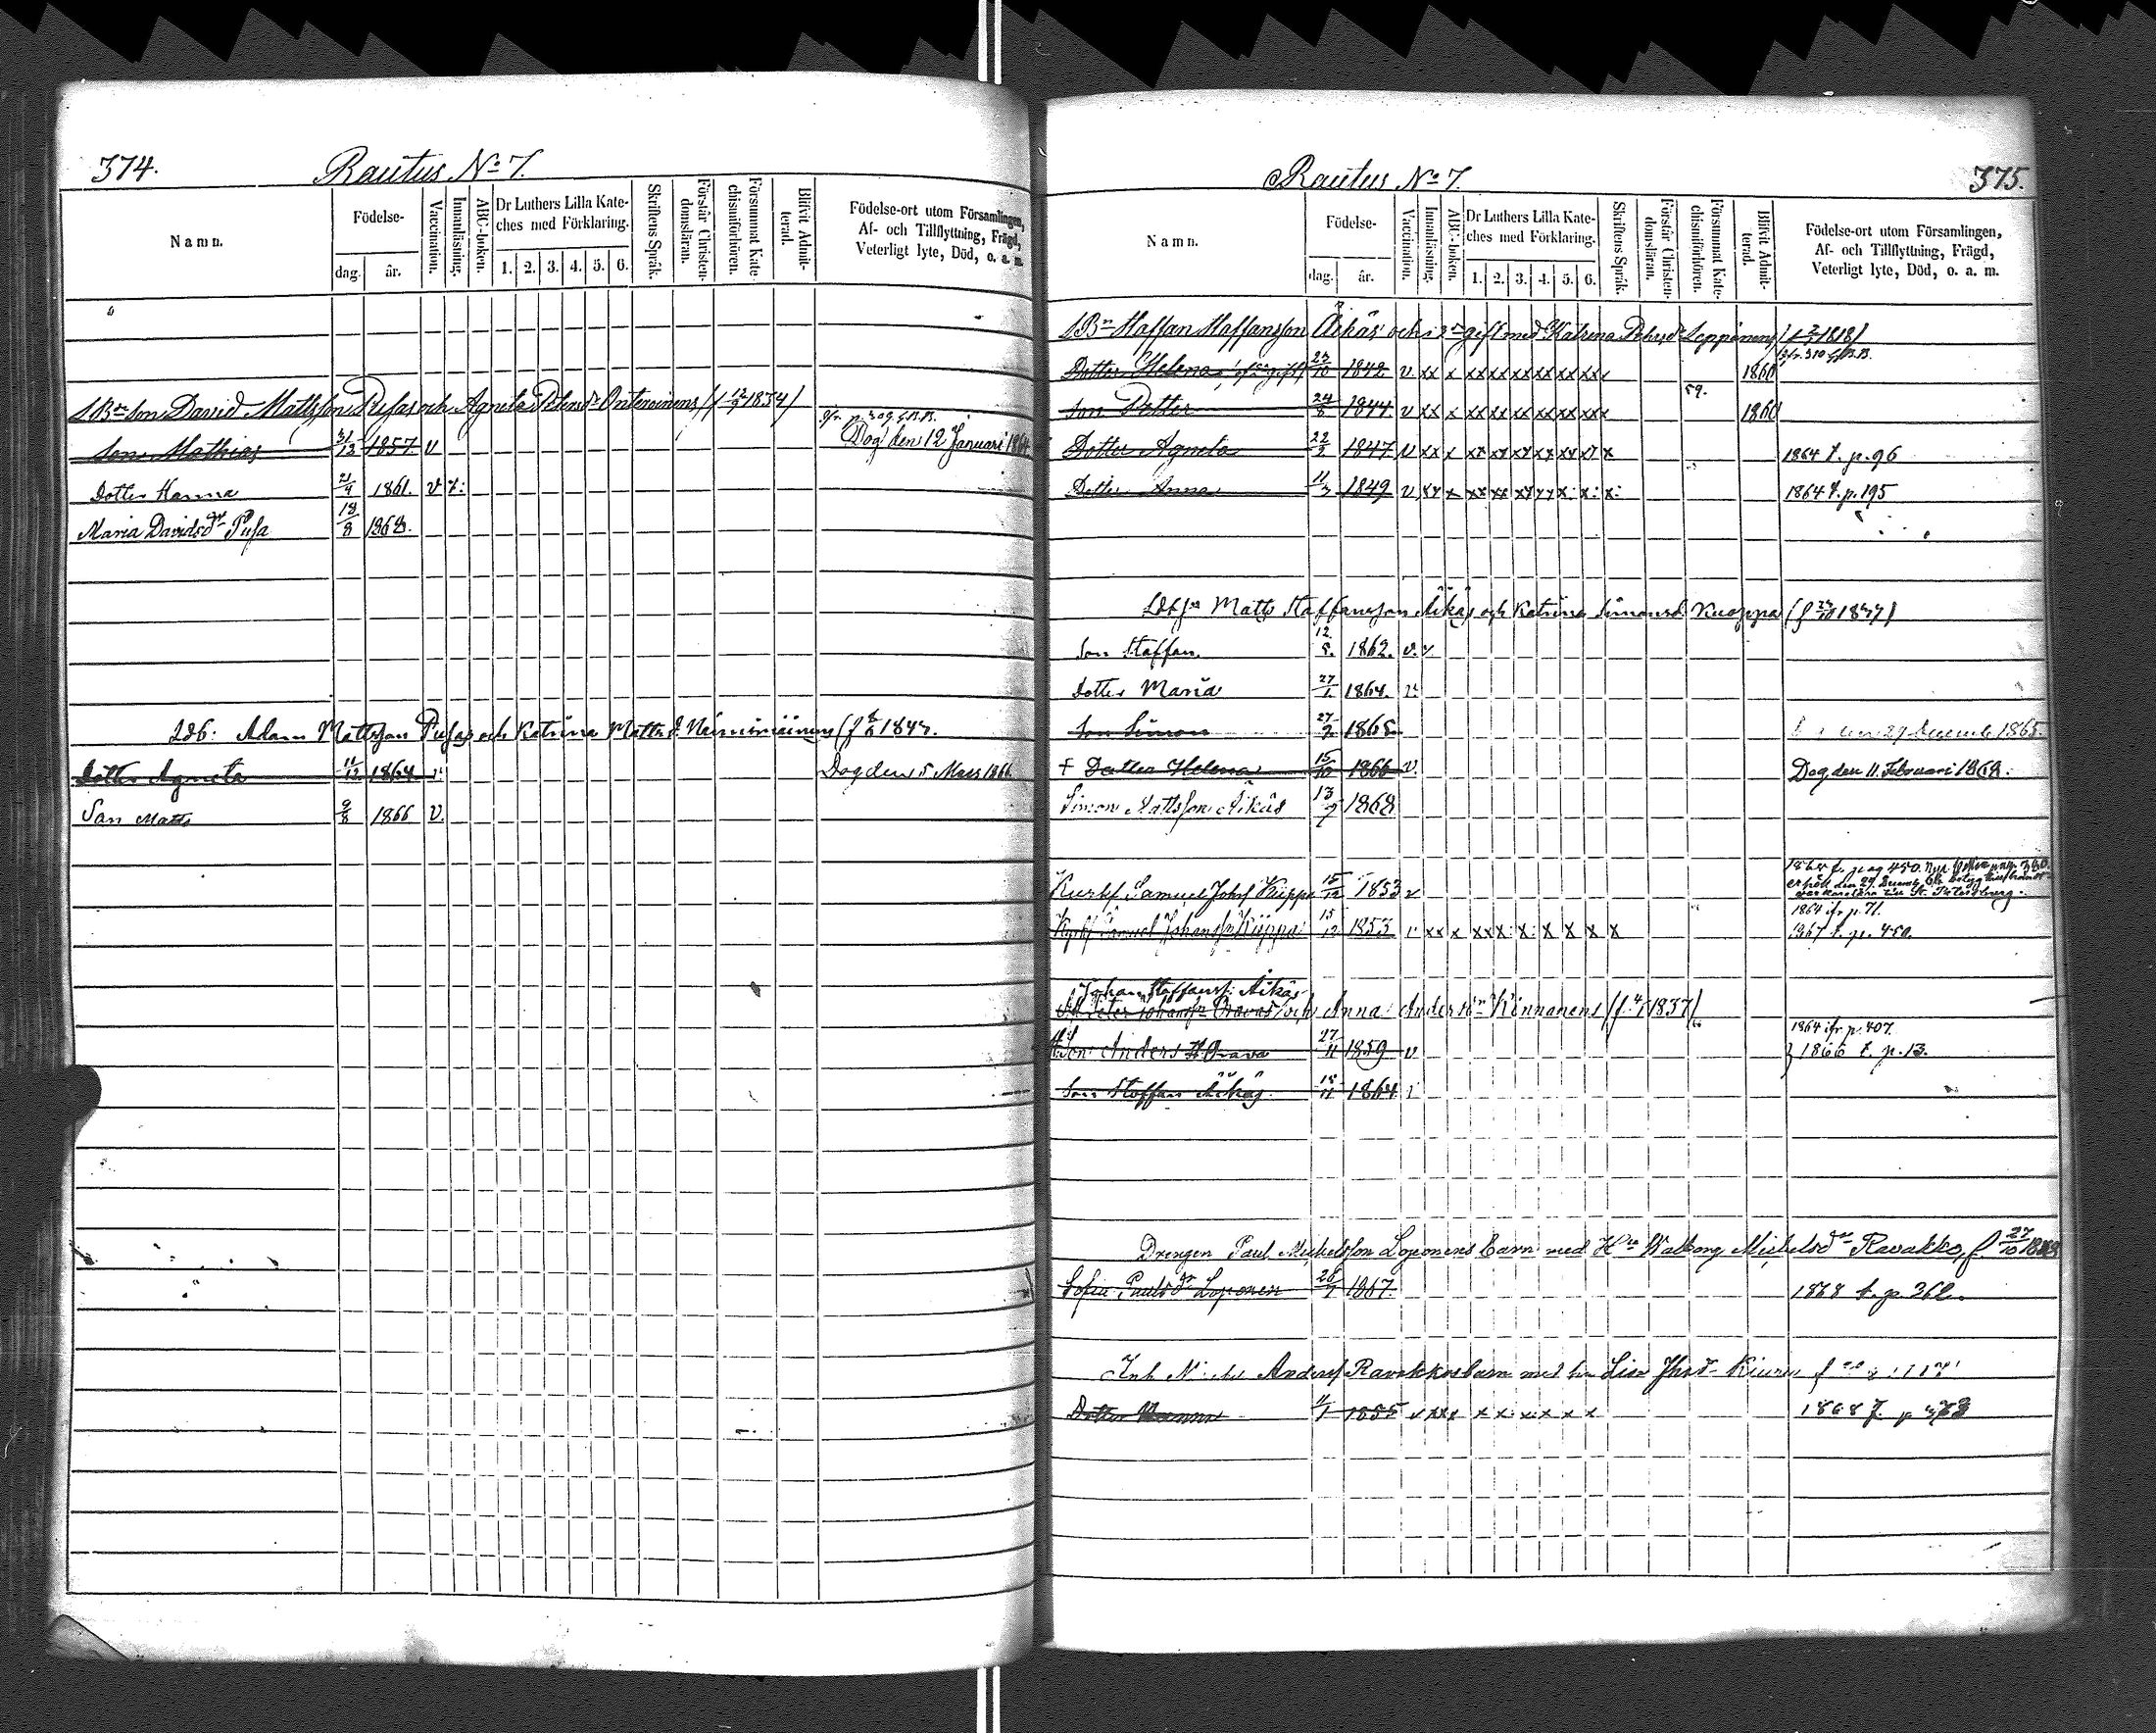 374.
Rautus No 7.
Namn.
Födelse-
dag.
år.
Vaccination.
Innanläsning.
ABC-boken.
Dr Luthers Lilla Kate-
ches med Förklaring.
1. 2. 3. 4. 5. 6.
Skriftens Språk.
Förstår Christen-
domsläran.
Försummat Kate-
chismiförhören.
Blifvit Admit-
terad.
Födelse-ort utom Församlingen,
Af- och Tillflyttning, Frägd,
Veterligt lyte, Död, o. a. m.
Son David Mattsson Pusas och Agneta Petersdr 1834)
Son Mathias 31/12 1857. v Dog den 12 Januari 1864
Dotter Hanna 21/4 1861. v x:
Maria Davidsdr Pusa 18/8 1868.
Adam Mattsson Pusas och Katrina Mattsd.
Dotter Agneta 11/12 1864 Dog den 5 Mars 1866
Son Matts 9/8 1866 v.
Rautus No 7.
375.
Namn.
Födelse-
dag.
år.
Vaccination.
Innanläsning.
ABC-boken.
Dr Luthers Lilla Kate-
ches med Förklaring.
1. 2. 3. 4. 5. 6.
Skriftens Språk.
Förstår Christen-
domsläran.
Försummat Kate-
chismiförhören.
Blifvit Admit-
terad.
Födelse-ort utom Församlingen,
Af- och Tillflyttning, Frägd,
Veterligt lyte, Död, o. a. m.
Staffan Staffansson Äikäs och gift med Katrina Pehrsdr Leppänen 1818)
Dotter Helena 1842 v xx x xx xx xx xx xx xx x 1860
59.
Son Petter 24/8 1844 v xx x xx xx xx xx xx xx x 1860
Dotter Agneta 22/2 1847 v xx x xx xx xx xx xx x 1864 t. p. 96
Dotter Anna 11/3 1849 v xx x xx xx xx x: x: x: 1864 t. p. 195
Matts Staffansson Äikäs och Katrina Simonsd. Kuoppa
Son Staffan. 12/5. 1862. v. x
Dotter Maria 27/1. 1864. v.
Son Simon 1865. den 29 December 1865.
† Dotter Helena 15/10 1866 v. Dog den 11 Februari 1868.
Simon Mattsson Äikäs 13/7 1868
St. Petersburg.
Samuel Johss Kuippa 15/12 1853 v
1864 ifr p. 71.
Samuel Johansson Kuippa 15/12 1853 1867 t. p. 450.
Johan Staffanss. Äikäs
Peter Johanss Oravas och Anna Andersdr Kinnanens (f. 4/1 1837)
1864 ifr p. 407.
Son Anders Orava 27/11 1859 v } 1866 t. p. 13.
Son Staffan Äikäs 1864
Drengen Paul Michelsson Loponens barn med Walborg Michelsdr Ravakko, f. 27/10
Sofia Paulsdr Loponen 26/7 1867. 1868 t. p. 362.
Anderss Ravakkos barn med Lisa
Dotter 11/1 1855 1868 t. p